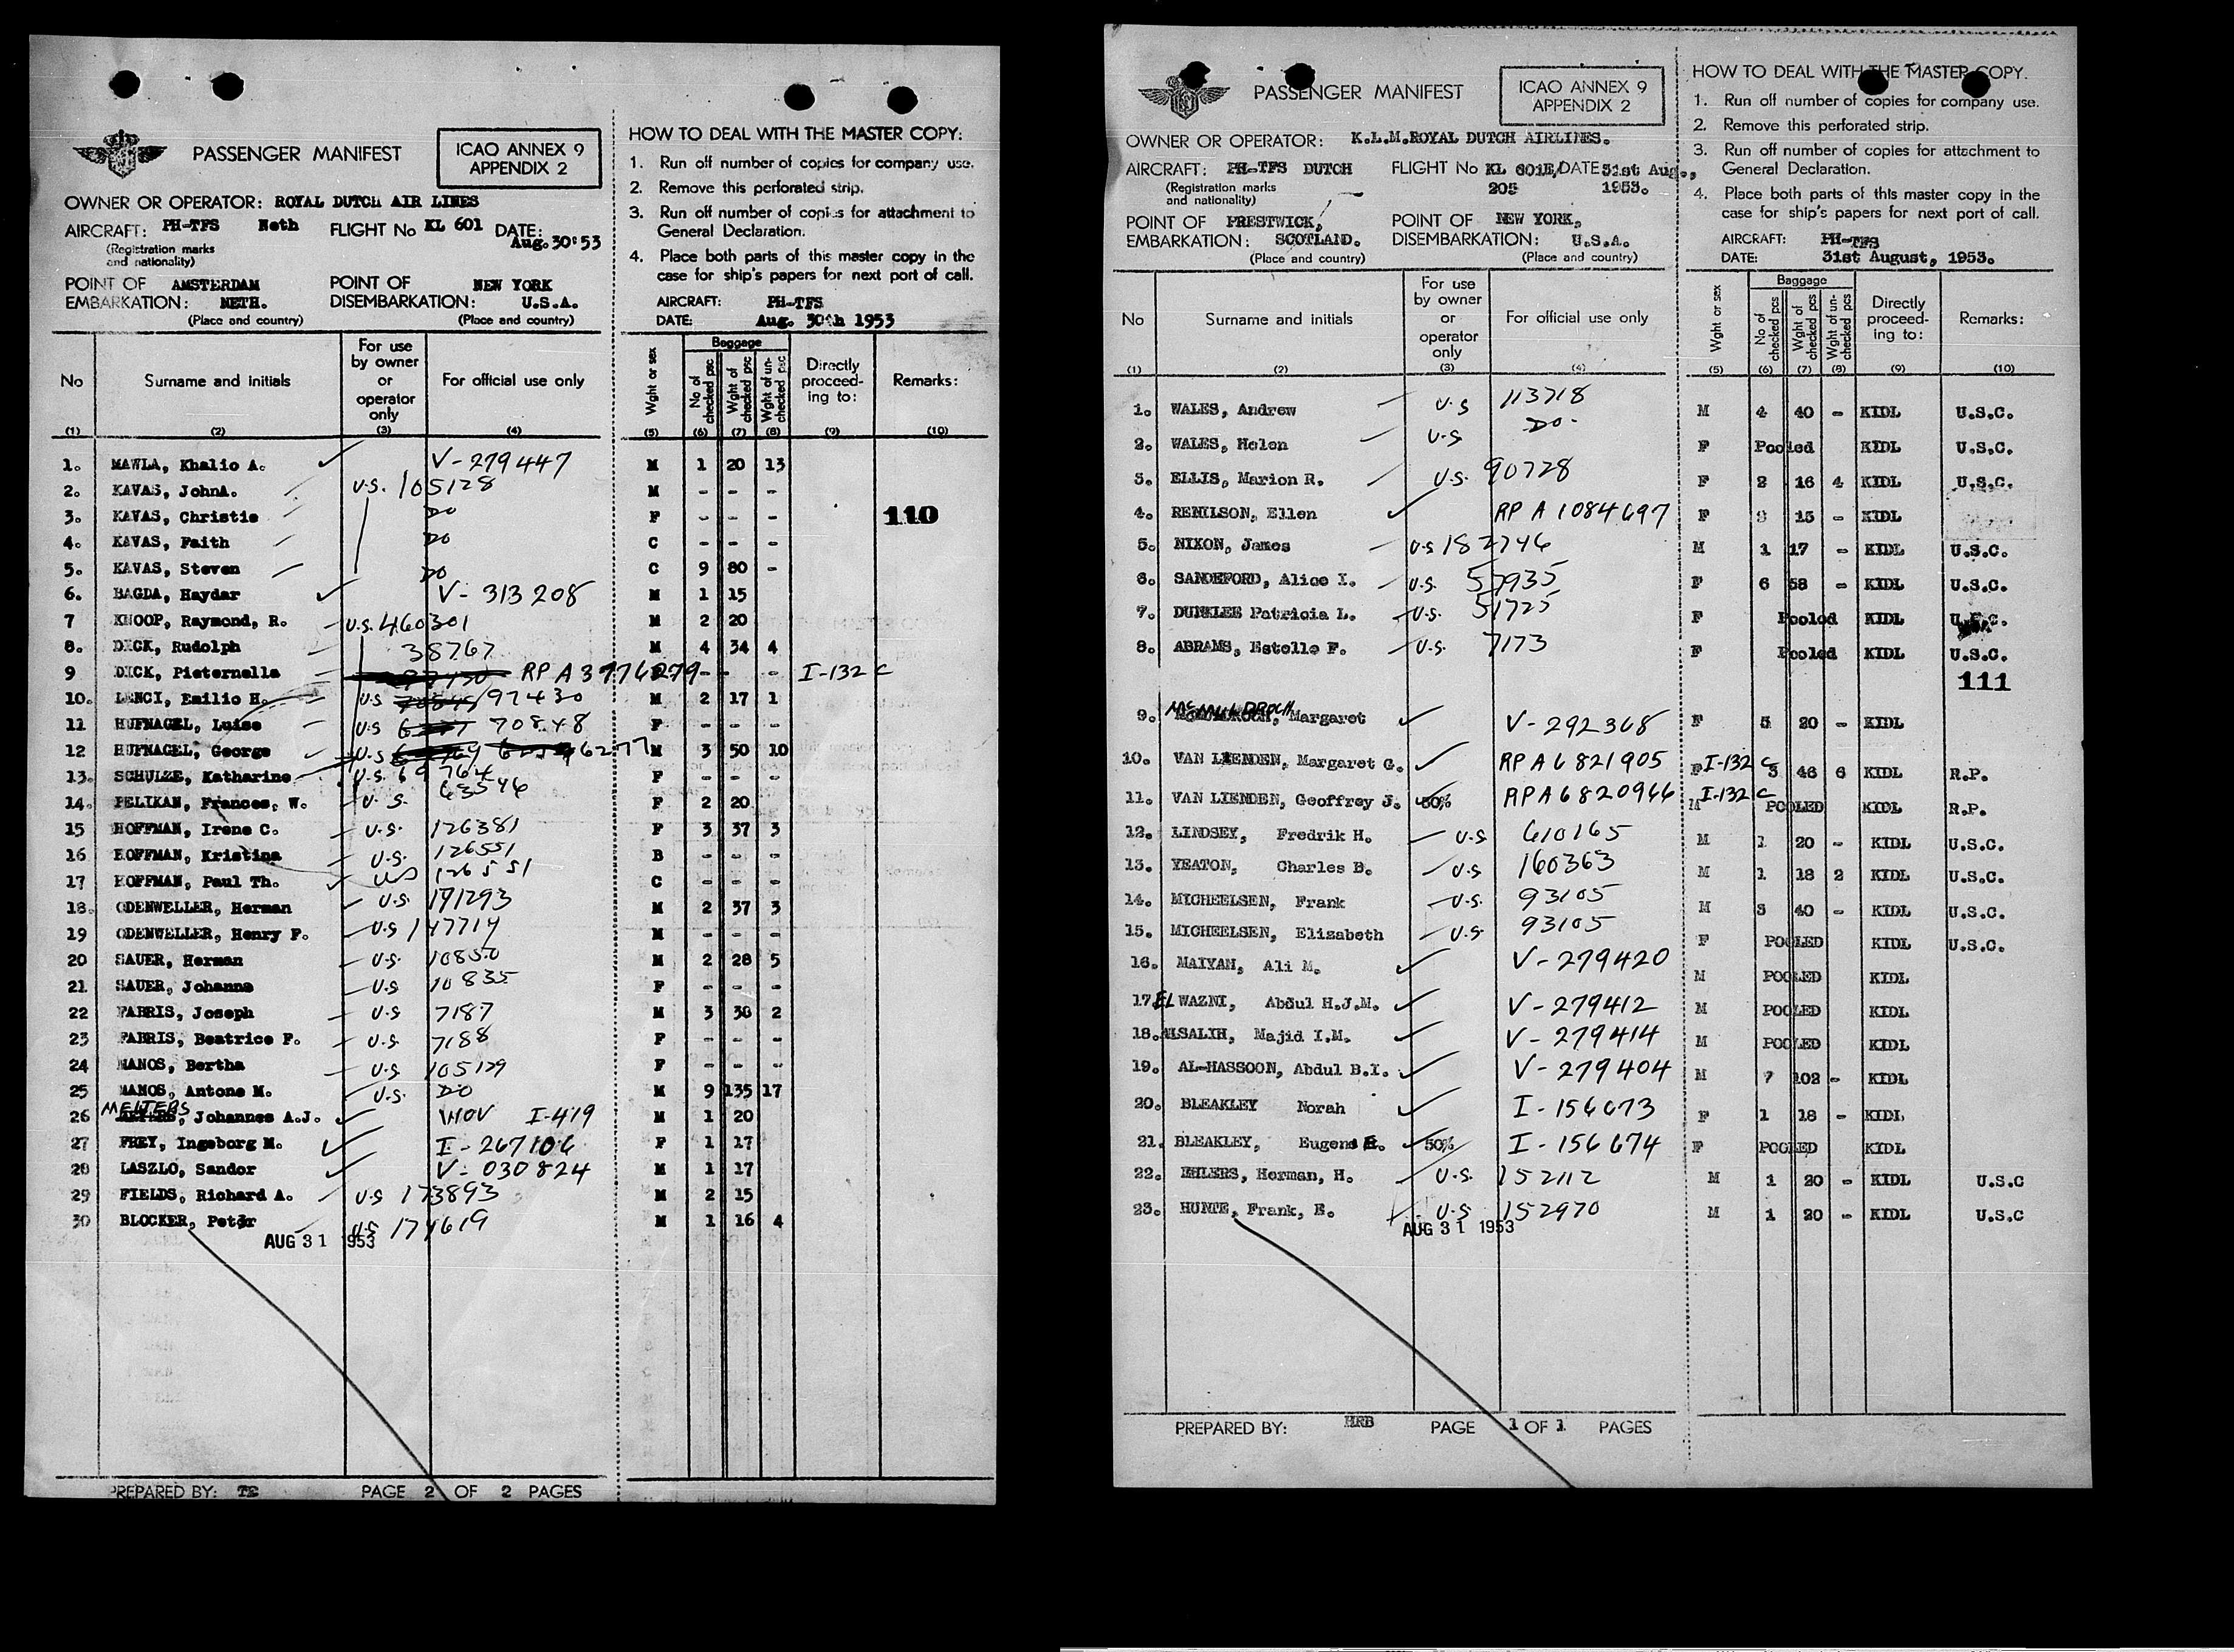 PASSENGER MANIFEST
ICAO ANNEX 9
APPENDIX 2
OWNER OR OPERATOR: ROYAL DUTCH AIR LINES
AIRCRAFT: PH-TFS Neth FLIGHT No KL 601 DATE: Aug. 30'53
(Registration marks
and nationality)
POINT OF AMSTERDAM POINT OF NEW YORK
EMBARKATION: NETH. DISEMBARKATION: U.S.A.
(Place and country) (Place and country)
HOW TO DEAL WITH THE MASTER COPY:
1. Run off number of copies for company use.
2. Remove this perforated strip.
3. Run off number of copies for attachment to
General Declaration.
4. Place both parts of this master copy in the
case for ship's papers for next port of call.
AIRCRAFT: PH-TFS
DATE: Aug. 30th 1953
No Surname and initials For use by owner or operator only For official use only Wght or sex Baggage No of checked psc Wght of checked psc Wght of un-checked psc Directly proceed-ing to: Remarks:
(1) (2) (3) (4) (5) (6) (7) (8) (9) (10)
1. MAWLA, Khalio A. V-279447 M 1 20 13
2. KAVAS, JohnA. U.S. 105128 M - - -
3. KAVAS, Christie DO F - - - 110
4. KAVAS, Faith DO C - - -
5. KAVAS, Steven DO C 9 80 -
6. BAGDA, Haydar V-313208 M 1 15
7 KNOOP, Raymond, R. U.S. 460301 M 2 20
8. DICK, Rudolph 38767 M 4 34 4
9 DICK, Pieternella RP A3776279 - - I-132 C
10. LENCI, Emilio H. U.S 97430 M 2 17 1
11 HUFNAGEL, Luise U.S 70848 F - - -
12 HUFNAGEL, George U.S 6277 M 3 50 10
13. SCHULZE, Katharine U.S. 69764 F - - -
14. PELIKAN, Frances, W. U.S. 63546 F 2 20
15 HOFFMAN, Irene C. U.S. 126381 F 3 37 3
16 HOFFMAN, Kristina U.S. 126551 B - - -
17 HOFFMAN, Paul Th. US 126551 C - - -
18. ODENWELLER, Herman U.S 191293 M 2 37 3
19 ODENWELLER, Henry F. U.S 147714 M - - -
20 SAUER, Herman U.S. 10850 M 2 28 5
21 SAUER, Johanna U.S 10835 F - - -
22 FABRIS, Joseph U.S 7187 M 3 38 2
23 FABRIS, Beatrice F. U.S. 7188 F - - -
24 MANOS, Bertha U.S 105129 F - - -
25 MANOS, Antone M. U.S. DO M 9 135 17
26 MELTERS, Johannes A.J. WOV I-419 M 1 20
27 FREY, Ingeborg M. I-267106 F 1 17
28 LASZLO, Sandor V-030824 M 1 17
29 FIELDS, Richard A. U.S 173893 M 2 15
30 BLOCKER, Peter U.S 174619 M 1 16 4
AUG 31 1953
PREPARED BY: TE PAGE 2 OF 2 PAGES
PASSENGER MANIFEST
ICAO ANNEX 9
APPENDIX 2
OWNER OR OPERATOR: K.L.M.ROYAL DUTCH AIRLINES.
AIRCRAFT: PH-TFS DUTCH FLIGHT No KL 601E/ DATE 31st Aug.,
(Registration marks 205 1953.
and nationality)
POINT OF PRESTWICK, POINT OF NEW YORK,
EMBARKATION: SCOTLAND. DISEMBARKATION: U.S.A.
(Place and country) (Place and country)
HOW TO DEAL WITH THE MASTER COPY.
1. Run off number of copies for company use.
2. Remove this perforated strip.
3. Run off number of copies for attachment to
General Declaration.
4. Place both parts of this master copy in the
case for ship's papers for next port of call.
AIRCRAFT: PH-TFS
DATE: 31st August, 1953.
No Surname and initials For use by owner or operator only For official use only Wght or sex Baggage No of checked pcs Wght of checked pcs Wght of un-checked pcs Directly proceed-ing to: Remarks:
(1) (2) (3) (4) (5) (6) (7) (8) (9) (10)
1. WALES, Andrew U.S 113718 M 4 40 - KIDL U.S.C.
2. WALES, Helen U.S DO. F Pooled KIDL U.S.C.
3. ELLIS, Marion R. U.S. 90728 F 2 16 4 KIDL U.S.C.
4. RENILSON, Ellen RP A1084697 F 15 - KIDL
5. NIXON, James U.S 182746 M 1 17 - KIDL U.S.C.
6. SANDEFORD, Alice I. U.S. 57935 F 6 58 - KIDL U.S.C.
7. DUNKLEE Patricia L. U.S. 51725 F Pooled KIDL
8. ABRAMS, Estelle F. U.S. 7173 F Pooled KIDL U.S.C.
111
9. McMULDROCH, Margaret V-292368 F 5 20 - KIDL
10. VAN LIENDEN, Margaret G. RP A6821905 F I-132 C 3 46 6 KIDL R.P.
11. VAN LIENDEN, Geoffrey J. 50% RP A6820966 M I-132 C POOLED KIDL R.P.
12. LINDSEY, Fredrik H. U.S 610165 M 1 20 - KIDL U.S.C.
13. YEATON, Charles B. U.S 160363 M 1 18 2 KIDL U.S.C.
14. MICHEELSEN, Frank U.S. 93105 M 3 40 - KIDL U.S.C.
15. MICHEELSEN, Elizabeth U.S 93105 F POOLED KIDL U.S.C.
16. MAIYAH, Ali M. V-279420 M POOLED KIDL
17. EL WAZNI, Abdul H.J.M. V-279412 M POOLED KIDL
18. ALSALIH, Majid I.M. V-279414 M POOLED KIDL
19. AL-HASSOON, Abdul B.I. V-279404 M 7 102 - KIDL
20. BLEAKLEY Norah I-156673 F 1 18 - KIDL
21. BLEAKLEY, Eugene E. 50% I-156674 F POOLED KIDL
22. EHLERS, Herman, H. U.S. 152112 M 1 20 - KIDL U.S.C
23. HUNTE, Frank, E. U.S 152970 M 1 20 - KIDL U.S.C
AUG 31 1953
PREPARED BY: HRB PAGE 1 OF 1 PAGES